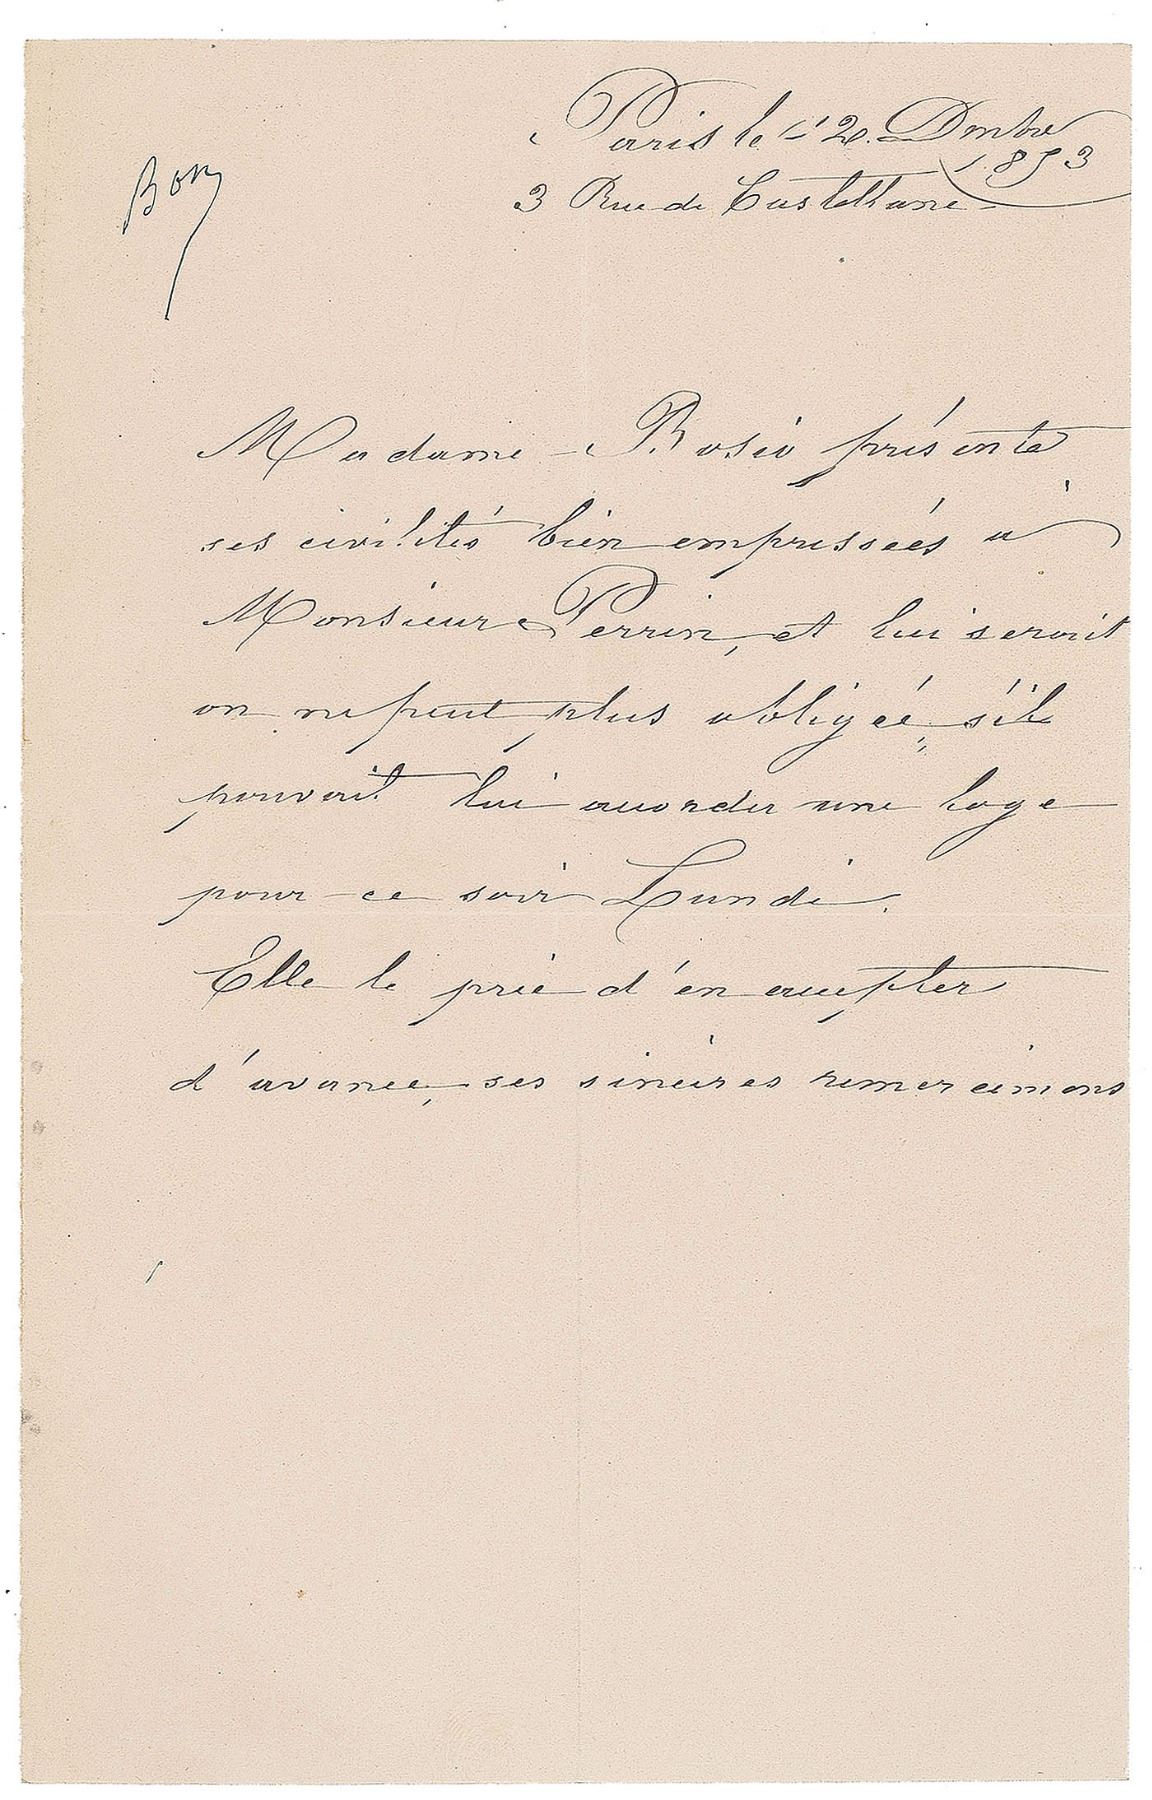 Paris le 12. Dmbre
1.853
3 Rue de Castellane
Bon
Madame Bosio présente
ses civilités bien empressées à
Monsieur Perrin, et lui serait
on ne peut plus obligée, s'il
pouvait lui accorder une loge
pour ce soir Lundi.
Elle le prie d'en accepter
d'avance, ses sincères remercimens